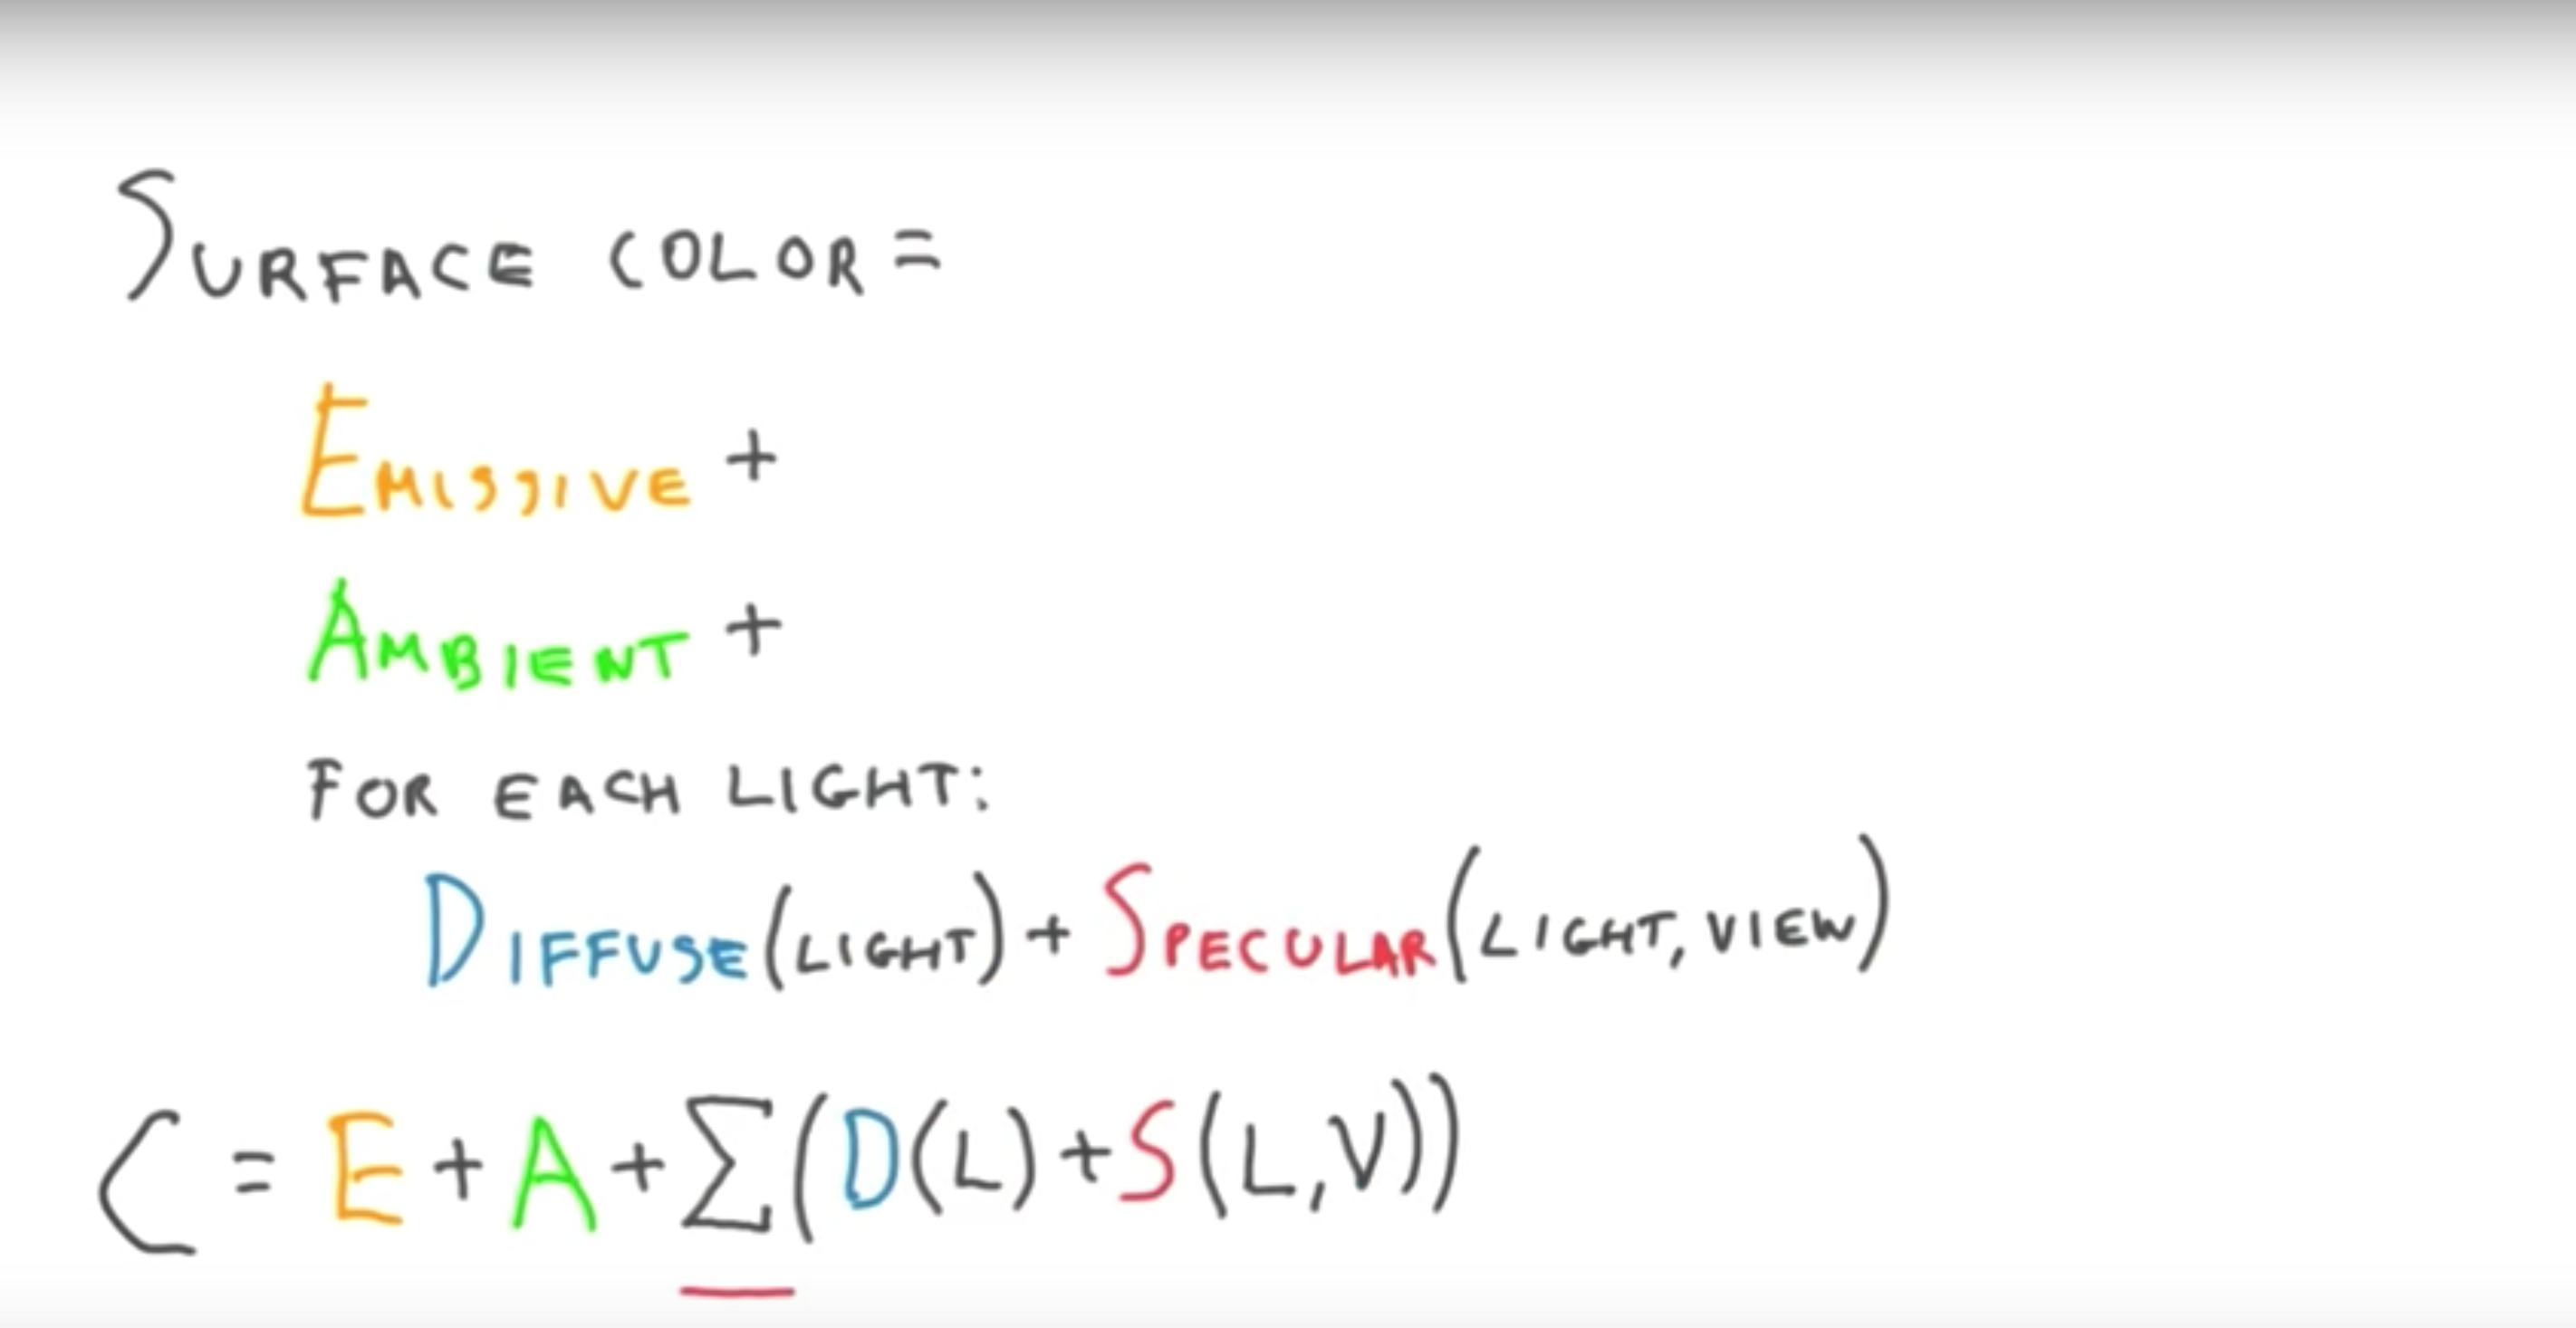 SURFACE COLOR =
EMISSIVE +
AMBIENT +
FOR EACH LIGHT:
DIFFUSE(LIGHT) + SPECULAR(LIGHT, VIEW)
C = E + A + Σ(D(L) + S(L,V))